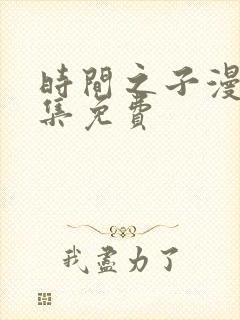 時間之子漫
集免費
我盡力了